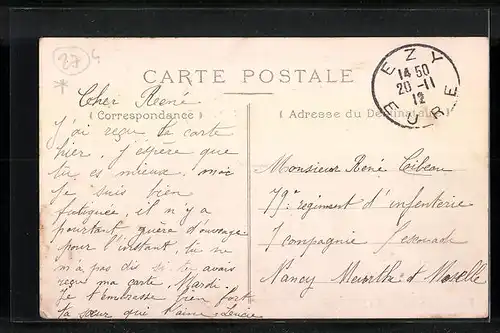 27
EZY
14 50
20 - 11
12
EURE
CARTE POSTALE
( Correspondance )
( Adresse du Destinataire )
Cher René
J'ai reçu ta carte
hier, j'espère que
tu es mieux, moi
je suis bien
fatiguée, il n'y a
pourtant guère d'ouvrage
pour l'instant, tu ne
m'a pas dis si tu avais
reçu ma carte, Mardi
Je t'embrasse bien fort
ta sœur qui t'aime Lucie
Monsieur René Cibeau
79e regiment d'infenterie
7 compagnie escouade
Nancy Meurthe et Moselle